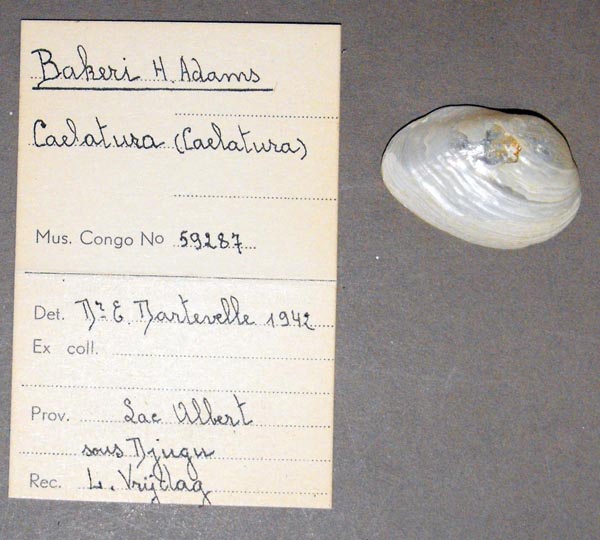 Bakeri H. Adams
Caelatura (Caelatura)
Mus. Congo No 59287
Det. Dr E. Dartevelle 1942
Ex coll.
Prov. Lac Albert
sous Djugu
Rec. L. Vrijdag